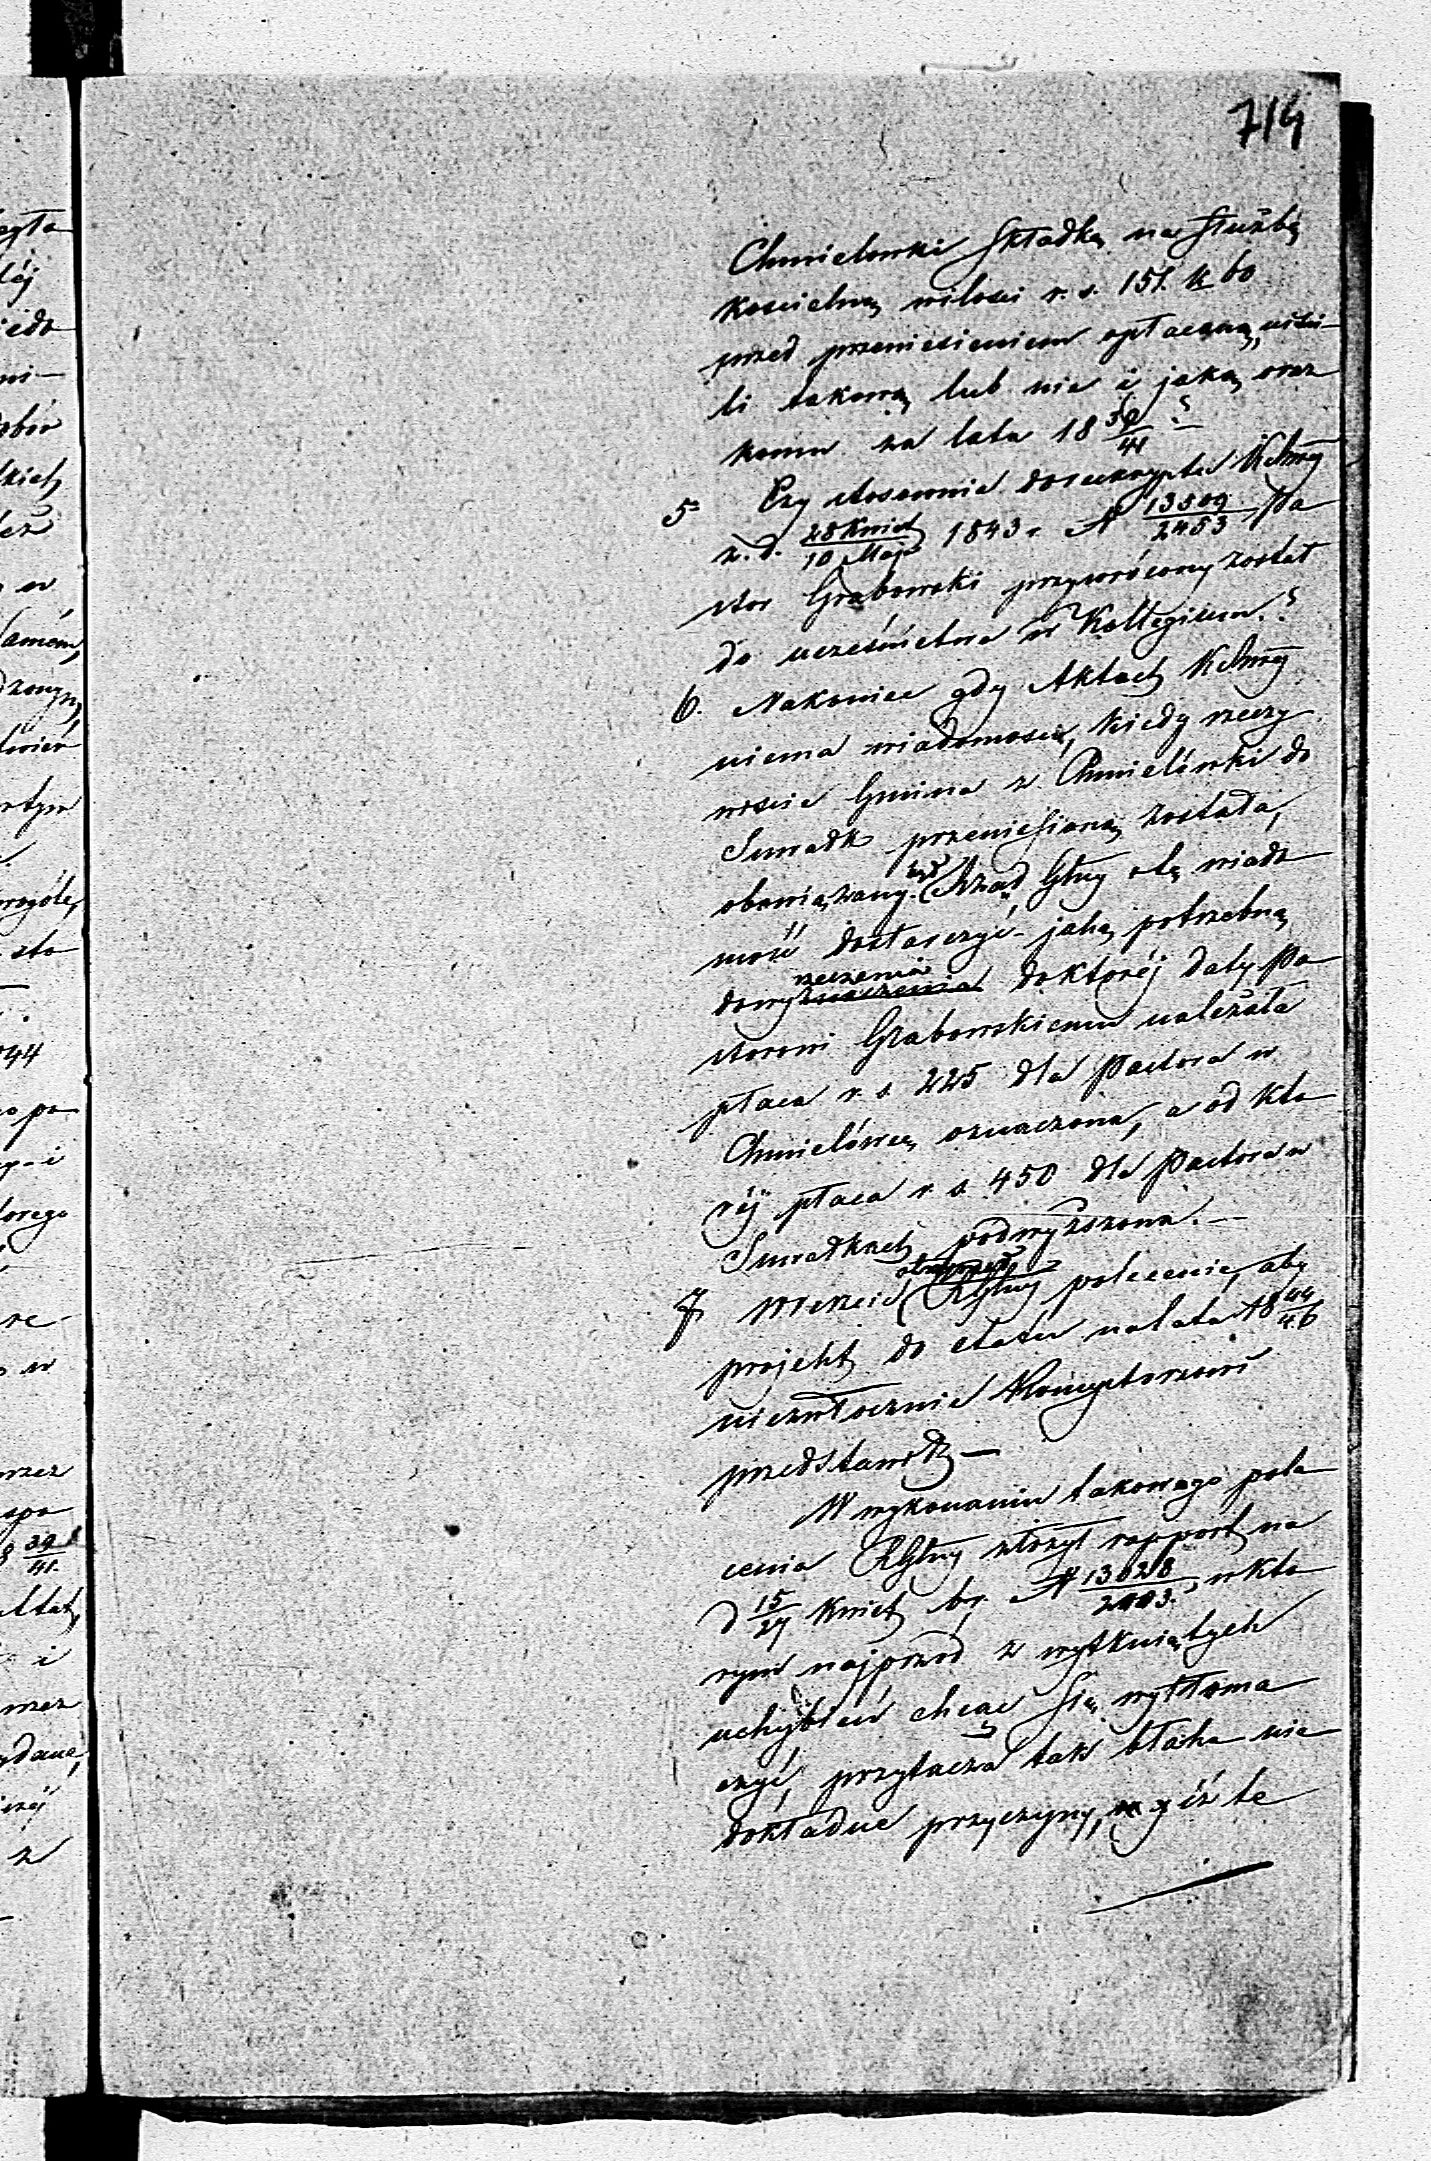 714
Chmielowki składkę na służbę
kościelną w ilości r. s. 151. k 60
przed przeniesieniem opłacaną, uiści-
li takową lub nie i jaką oraz
komu za lata 18 39/41 ?
5 Czy stosownie do reskryptu
z. d. 28 Kwiet/10 Maja 1843 r. N 13509/2453 Pa
stor Grabowski przywrócony został
do uczestnictwa w Kollegium. ?
6. Nakoniec gdy Aktach
niema wiadomości, kiedy rzeczy
wiście Gmina z Chmielówki do
Suwałk przeniesioną została,
obowiązany był Rząd Gbny tę wiado
mość dostarczyć jako potrzebną
do wyrzeczenia do której daty Pa
storowi Grabowskiemu należała
płaca r. s. 225 dla Pastora w
Chmielówce oznaczona, a od któ
rej płaca r. s. 450 dla Pastora w
Suwałkach podwyższona. —
7 Wreście otrzymał RGbny polecenie, aby
projekt do etatu na lata 18 44/46
niezwłocznie Konsystorzowi
przedstawił —
W wykonaniu takowego pole
cenia RGbny złożył rapport na
d 15/27 Kwiet br. N 13028/2403. w któ
rym najprzód z wytkniętych
uchybień chcąc się wytłoma
czyć, przytacza tak błahe nie
dokładne przyczyny, iż te